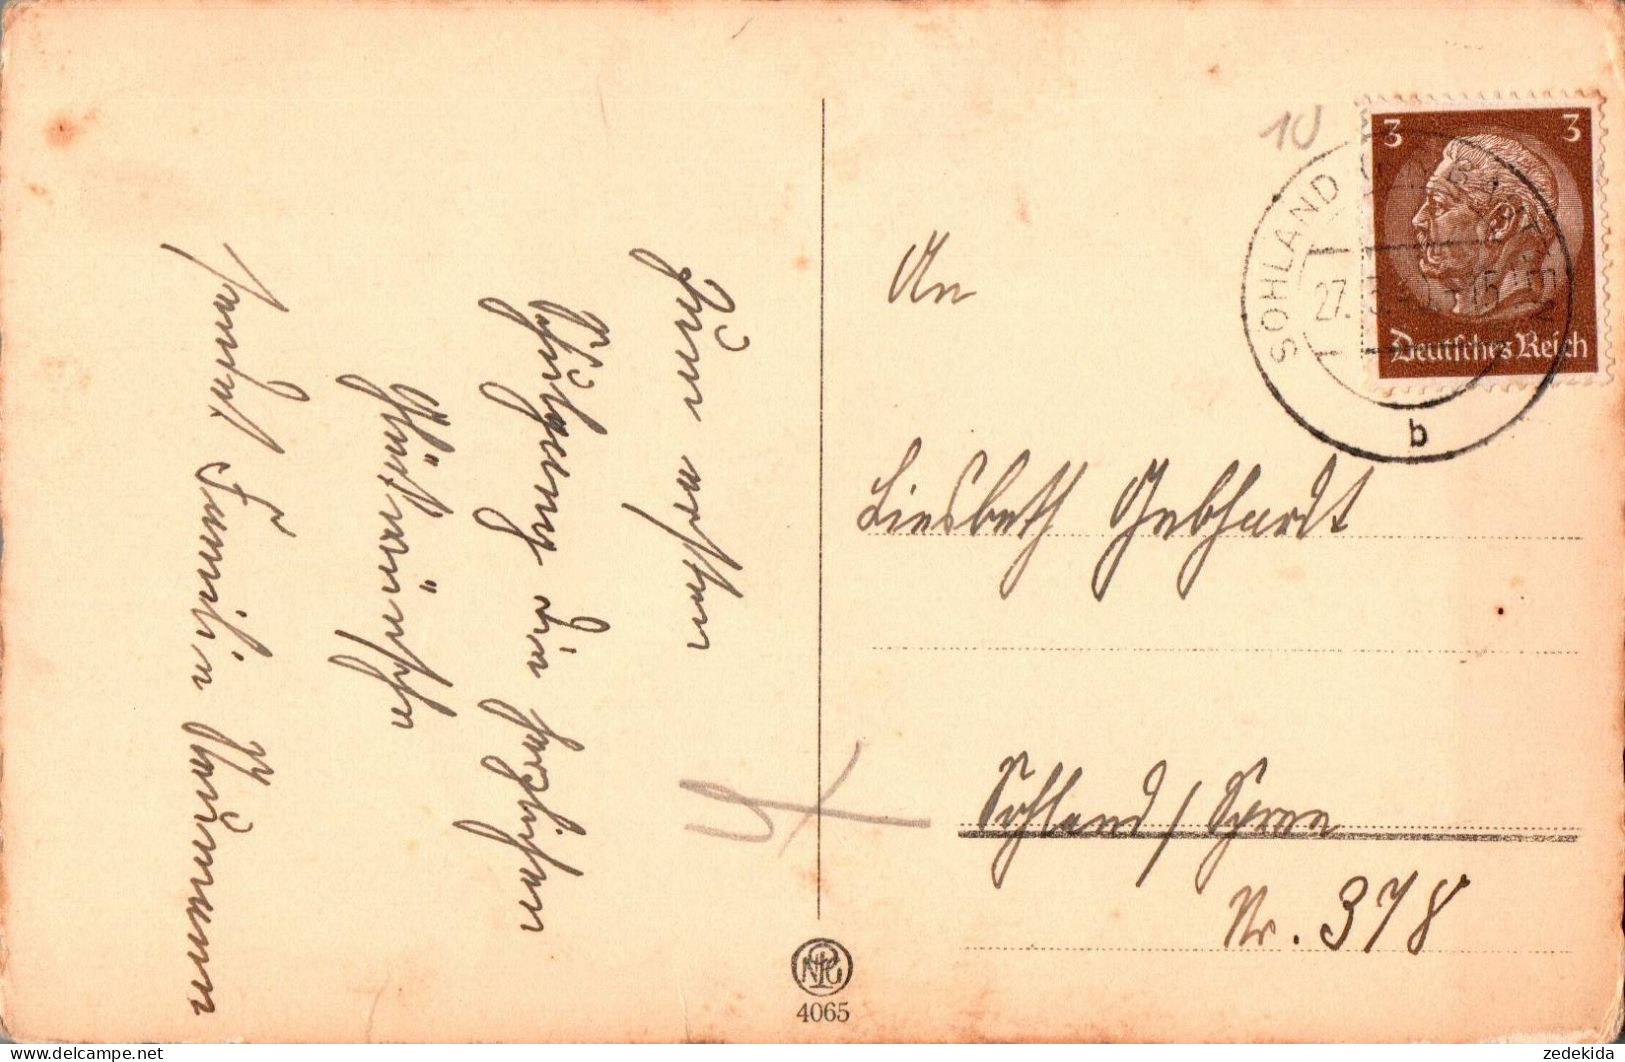 Zum ersten
Schulgang die herzlichsten
Glückwünsche
sendet Familie Neumann
An
Liesbeth Gebhardt
Sohland / Spree
Nr. 378
10
3 3
Deutsches Reich
SOHLAND
27.
b
4065
zedekida